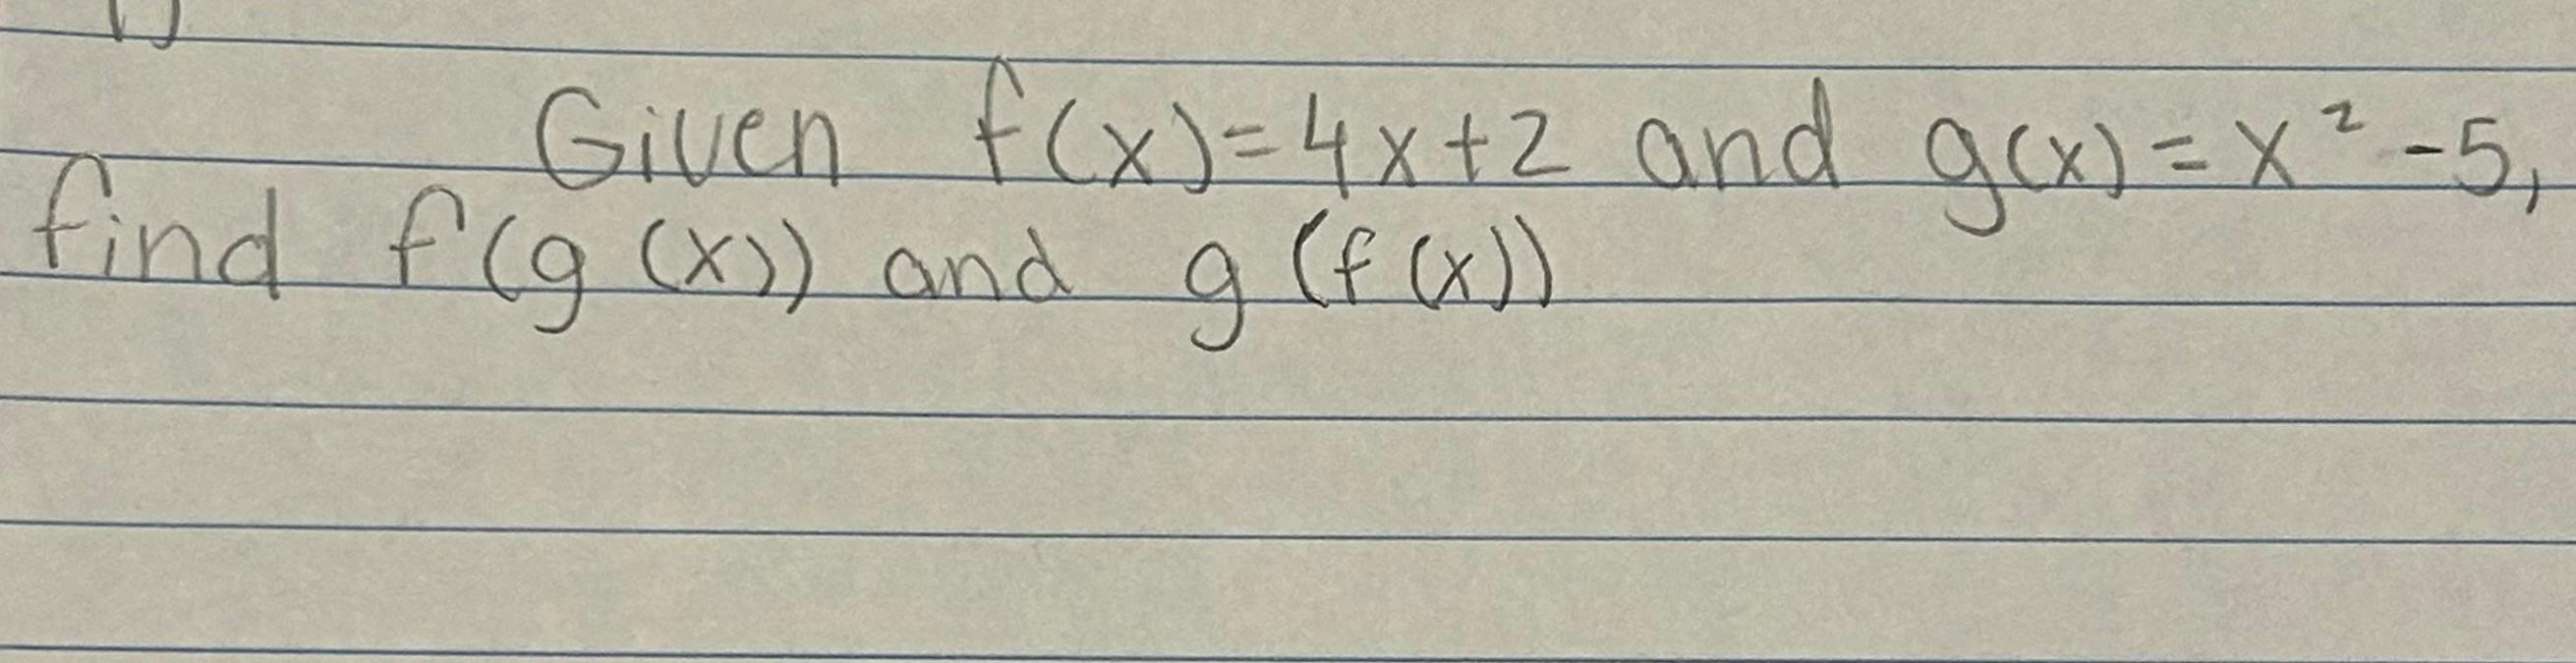 Given f(x)=4x+2 and g(x)=x²-5,
find f(g(x)) and g(f(x))